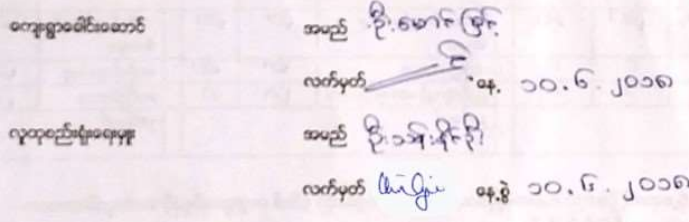 ကျေးရွာခေါင်းဆောင် အမည် ဦးမောင်မြင့်
လက်မှတ် နေ့ ၁၀.၆.၂၀၁၈
လူထုစည်းရုံးရေးမှူး အမည် ဦး
လက်မှတ် နေ့စွဲ ၁၀.၆.၂၀၁၈